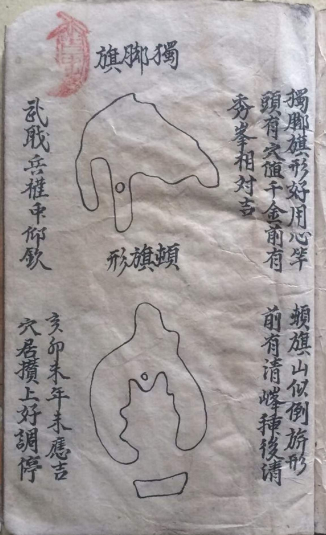 獨腳旗
獨腳旗形好用心竿
頭有穴值千金前有
秀峯相对吉
武戝兵權申仰欽
頓旗形
頓旗山似倒旂形
前有清峰種後清
亥卯未年未應吉
穴居攢上好調停